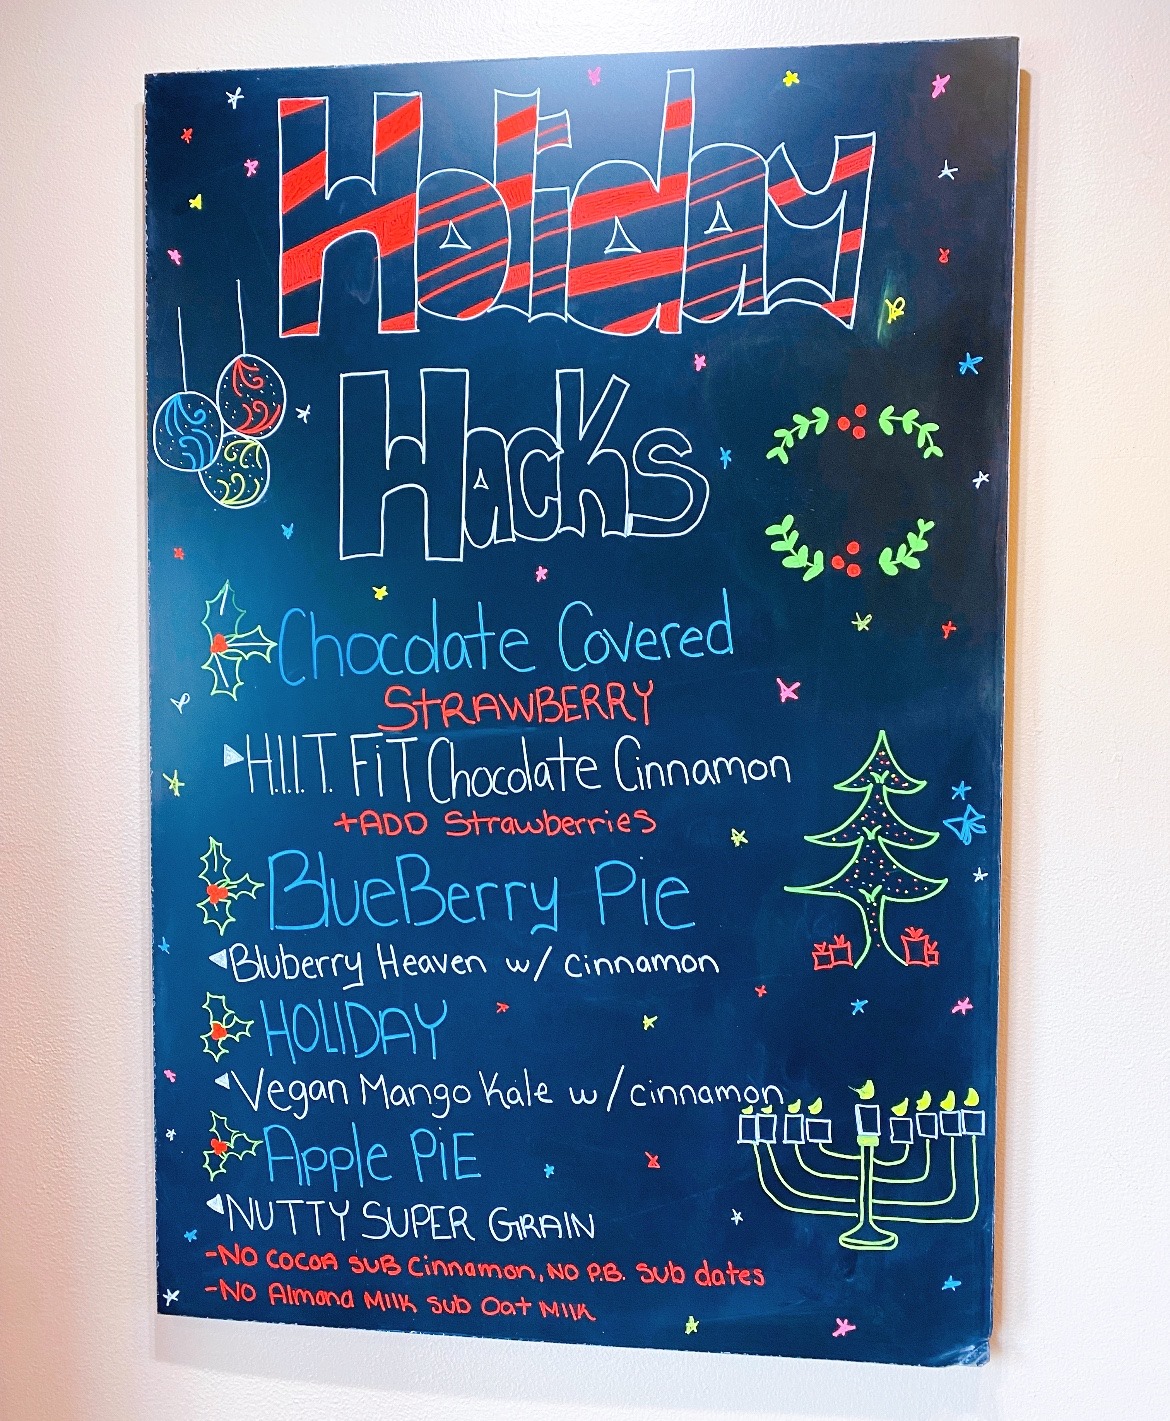 Holiday
Hacks
Chocolate Covered
STRAWBERRY
H.I.I.T. FiT Chocolate Cinnamon
+ADD Strawberries
BlueBerry Pie
Bluberry Heaven w/ cinnamon
HOLIDAY
Vegan Mango Kale w/cinnamon
Apple PiE
NUTTY SUPER GRAIN
-NO COCOA SUB Cinnamon, NO P.B. Sub dates
-NO Almond Milk Sub Oat Milk